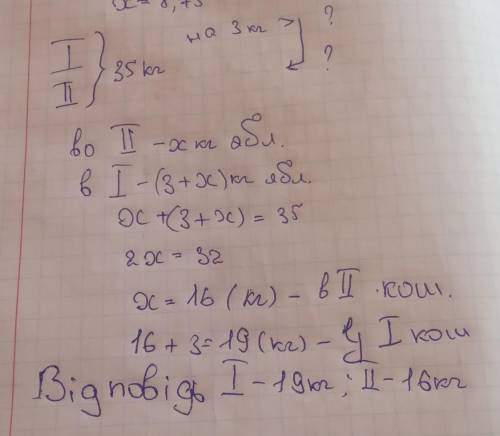 x = 8,75
на 3 кг > ?
I
II } 35 кг ?
во II - x кг ябл.
в I - (3 + x) кг ябл.
x + (3 + x) = 35
2x = 32
x = 16 (кг) - в II кош.
16 + 3 = 19 (кг) - у I кош
Відповідь I - 19 кг; II - 16 кг